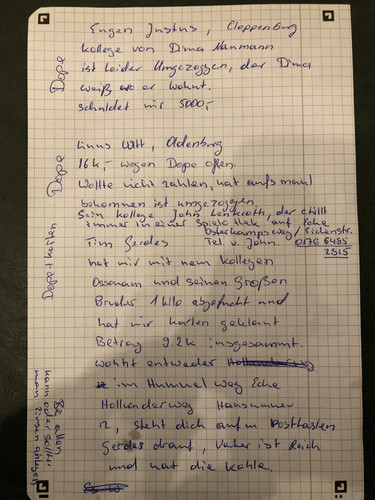 Eugen Justus, Cloppenburg
Kollege von Dima Naumann
ist leider Umgezoggen, der Dima
weiß wo er wohnt.
schuldet mir 5000,-
Dope
Linus Witt, Oldenburg
16k,- wegen Dope offen.
Wollte nicht zahlen, hat aufs maul
bekommen ist umgezogen.
Sein kollege John, der chillt
immer in einer Spielothek auf Ecke
Tel. v. John. 0176 6485
2515
Dope
Tim Gerdes
hat mir mit nem kollegen
und seinen Großen
Bruder 1 kilo abgefuckt und
hat mir karten geklaut
Betrag 9.2k insgesammt.
wohnt entweder
im Hummel weg Ecke
Hollunderweg Hausnummer
12, steht dick auf'm Postkasten
Gerdes drauf, Vater ist Reich
und hat die kohle.
Dope + karten
Bei allen
kann oder sollte
man Zinsen anlegen